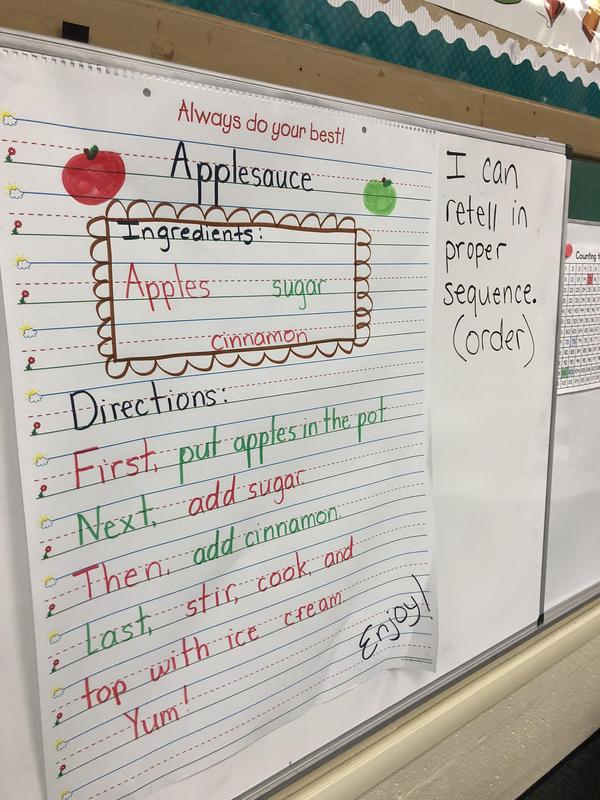 Always do your best!
Applesauce
Ingredients:
Apples sugar
cinnamon
Directions:
First, put apples in the pot
Next, add sugar
Then, add cinnamon.
Last, stir, cook, and
top with ice cream.
Yum!
Enjoy!
I can
retell in
proper
sequence.
(order)
Counting